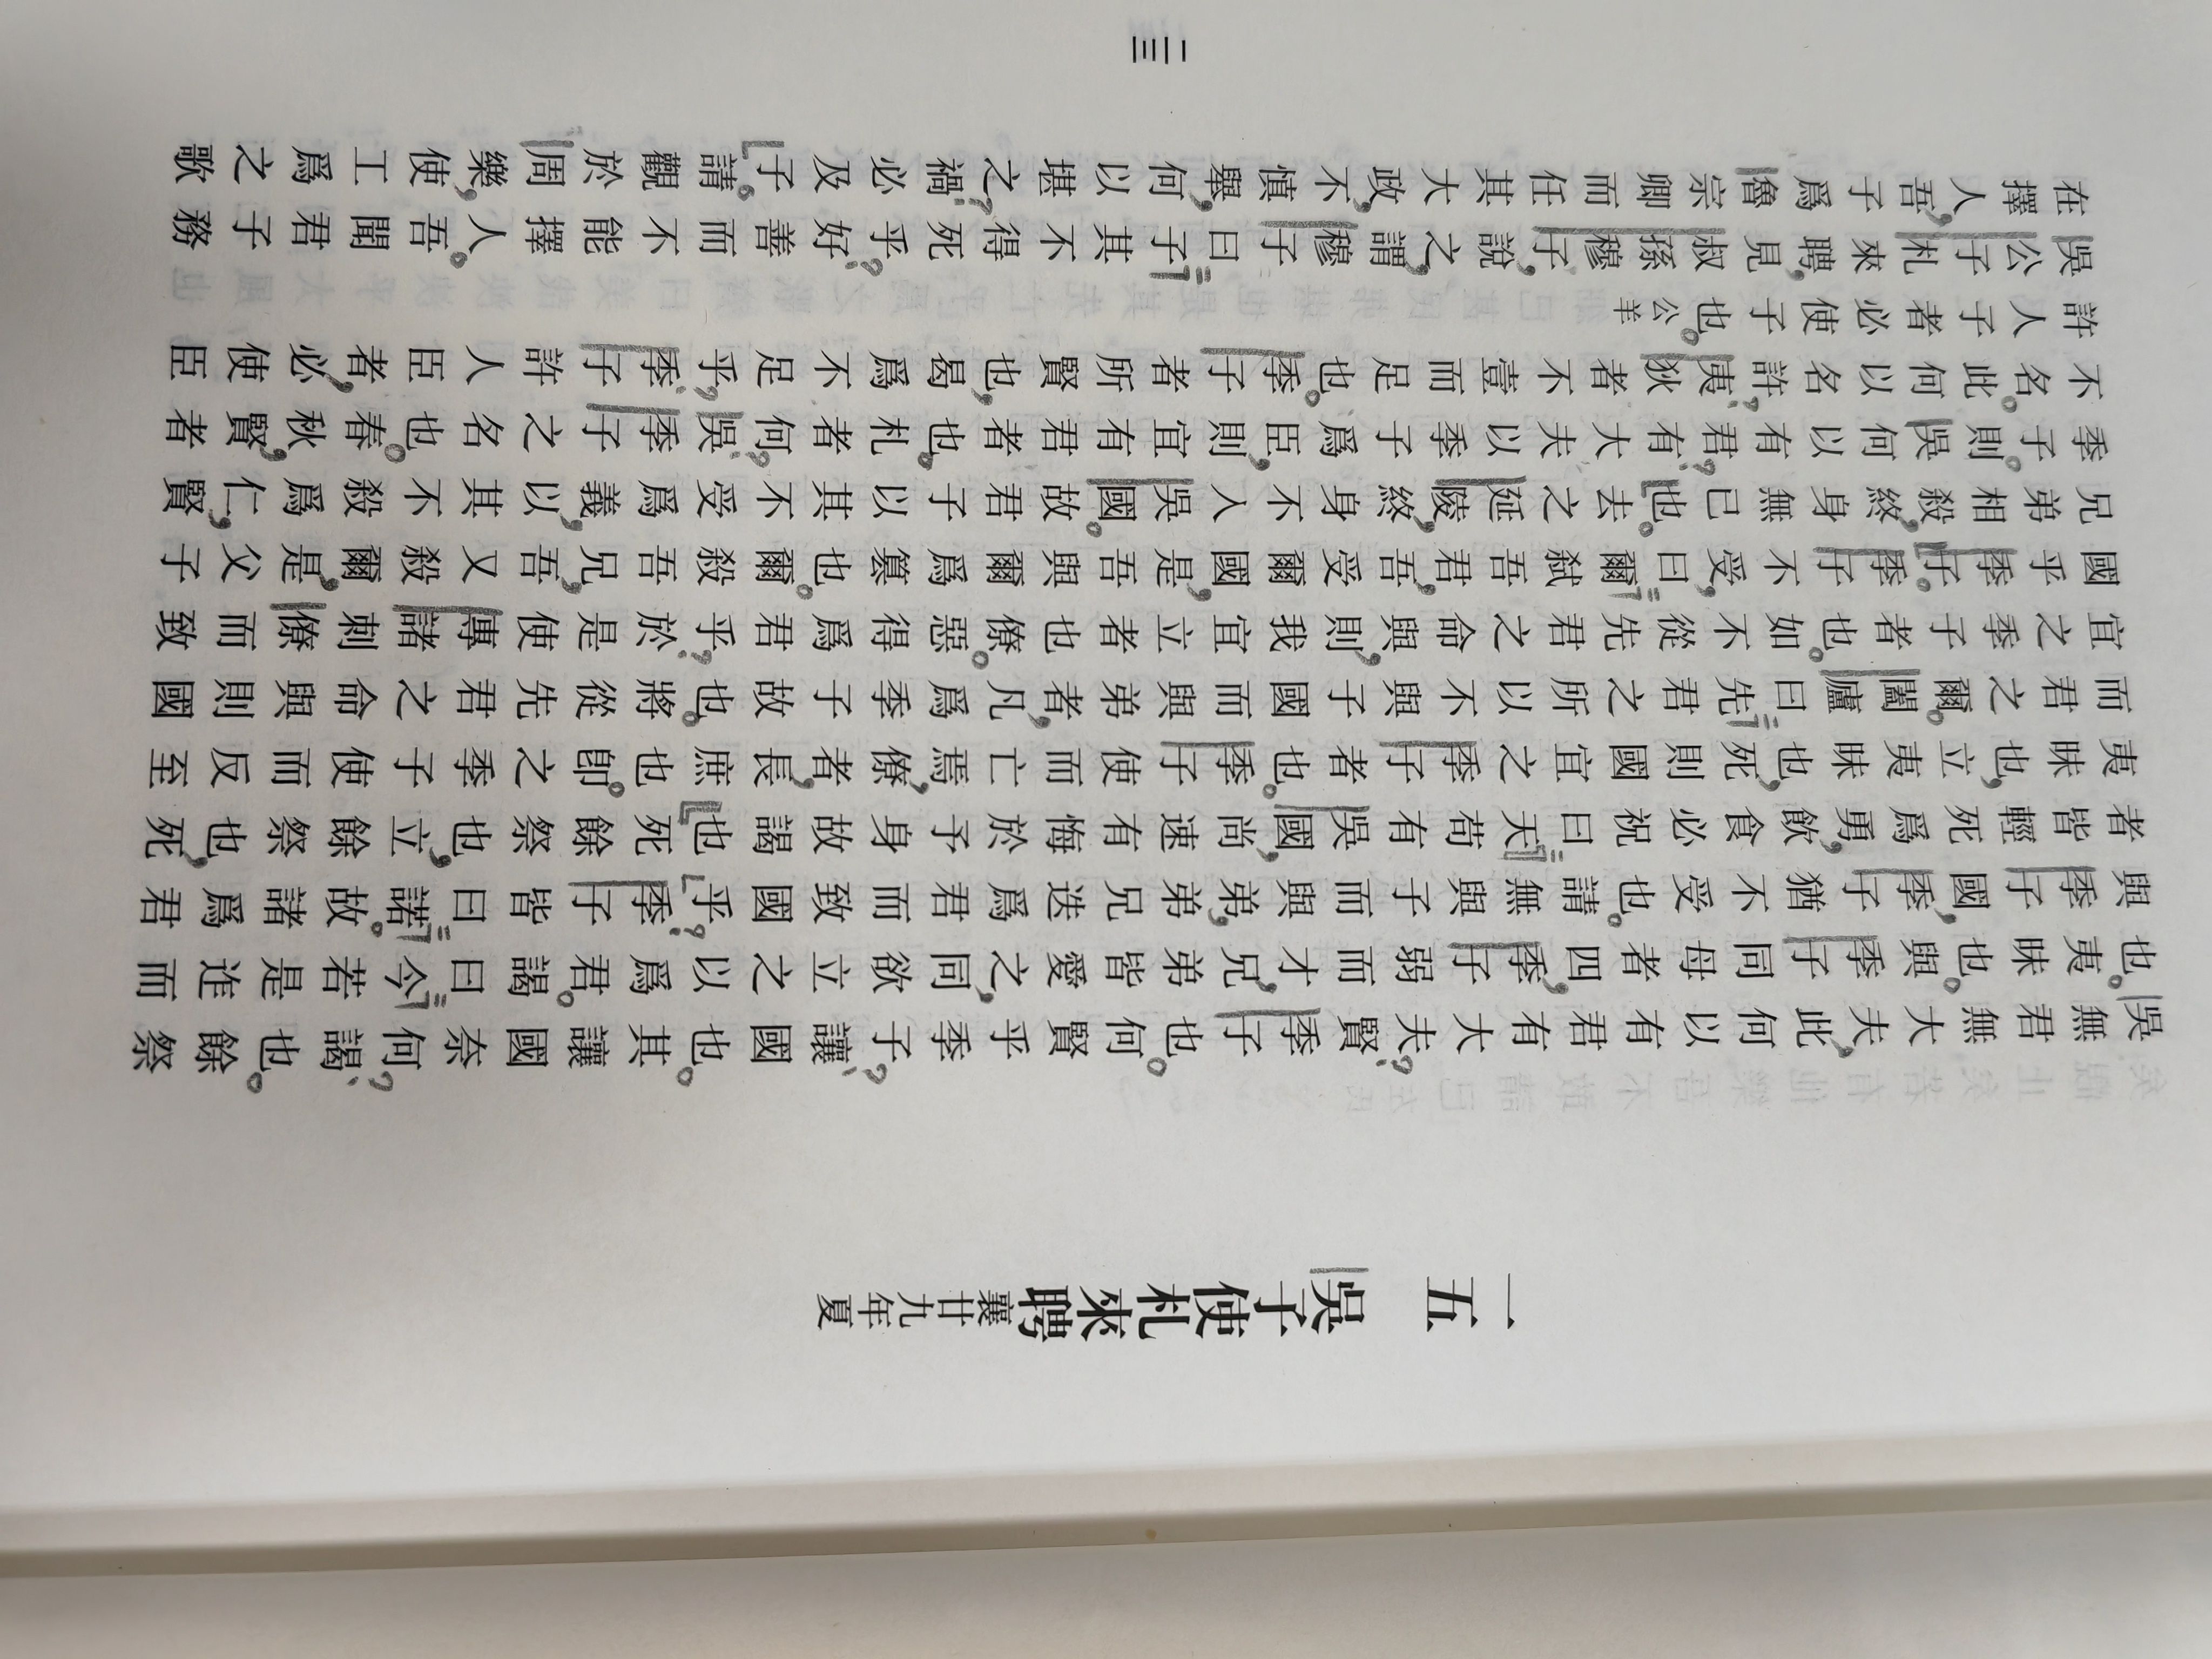 一五 吳子使札來聘 襄廿九年夏
吳無君無大夫，此何以有君有大夫？賢季子也。何賢乎季子？讓國也。其讓國奈何？謁也。餘祭
也。夷昧也。與季子同母者四，季子弱而才，兄弟皆愛之，同欲立之以爲君。謁曰『今若是迮而
與季子國，季子猶不受也。請無與子而與弟，弟兄迭爲君而致國乎？」季子皆曰『諾。故諸爲君
者皆輕死爲勇，飲食必祝曰『天苟有吳國，尚速有悔於予身故謁也』死餘祭也，立餘祭也，死
夷昧也，立夷昧也，死則國宜之季子者也。季子使而亡焉，僚者，長庶也。卽之季子使而反至
而君之爾。闔廬曰『先君之所以不與子國而與弟者，凡爲季子故也。將從先君之命與則國
宜之季子者也。如不從先君之命與，則我宜立者也。僚惡得爲君乎？於是使專諸刺僚而致
國乎季子。季子不受，曰『爾弒吾君，吾受爾國，是吾與爾爲簒也。爾殺吾兄，吾又殺爾，是父子
兄弟相殺，終身無已也。」去之延陵，終身不入吳國。故君子以其不受爲義，以其不殺爲仁，賢
季子。則吳何以有君？有大夫以季子爲臣，則宜有君者也，札者何？吳季子之名也。春秋賢，者
不名。此何以名許？夷狄者不壹而足也。季子者所賢也，曷爲不足乎？季子許人臣者，必使臣
許人子者必使子也。公羊
吳公子札來聘，見叔孫穆子，說之，謂穆子曰『子其不得死乎？好善而不能擇人。吾聞君子務
在擇人，吾子爲魯宗卿而任其大政，不慎舉，何以堪之？禍必及子」請。觀於周樂，使工爲之歌
二三